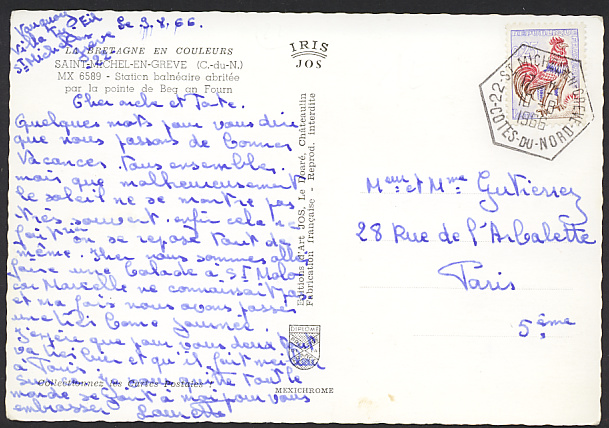 Villa Ty
St Michel en
Grève
22
Le 9.8.66.
LA BRETAGNE EN COULEURS
SAINT-MICHEL-EN-GREVE (C.-du-N.)
MX 6589 - Station balnéaire abritée
par la pointe de Beg an Fourn
IRIS
JOS
Cher oncle et Tante.
Quelques mots pour vous dire
que nous passons de bonnes
Vacances. Tous ensembles.
mais que malheureusement
le soleil ne se montre pas
très souvent. enfin cela ne
fait rien on se repose tout de
même. Hier nous sommes allés
faire une balade à St Malo
car Marcelle ne connaissait pas
et ma fois nous avons passer
une très bonne journée
J'espère que pour vous deux tout
va très bien et qu'il fait meilleur
à Paris
tout le
monde se joint à moi pour vous
embrasser
Collectionnez les Cartes Postales !
Editions d'Art JOS, Le Doaré, Châteaulin
Fabrication française - Reprod. interdite
DIPLOME
MEXICHROME
22 - ST MICHEL-EN-GREVE
1966
COTES-DU-NORD
Meur et Mme Gutierrez
28 Rue de l'Arbalette
Paris
5ème